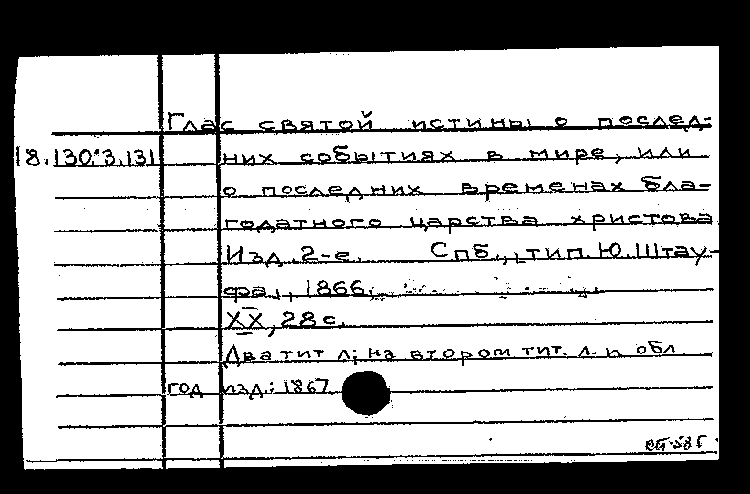 Глас святой истины о послед-
18.130.3.131 них событиях в мире, или
о последних временах бла-
годатного царства христова
Изд. 2-е. Спб., тип. Ю. Штау-
фа, 1866.
XX, 28 с.
Два тит. л.; на втором тит. л. и обл.
год изд.: 1867.